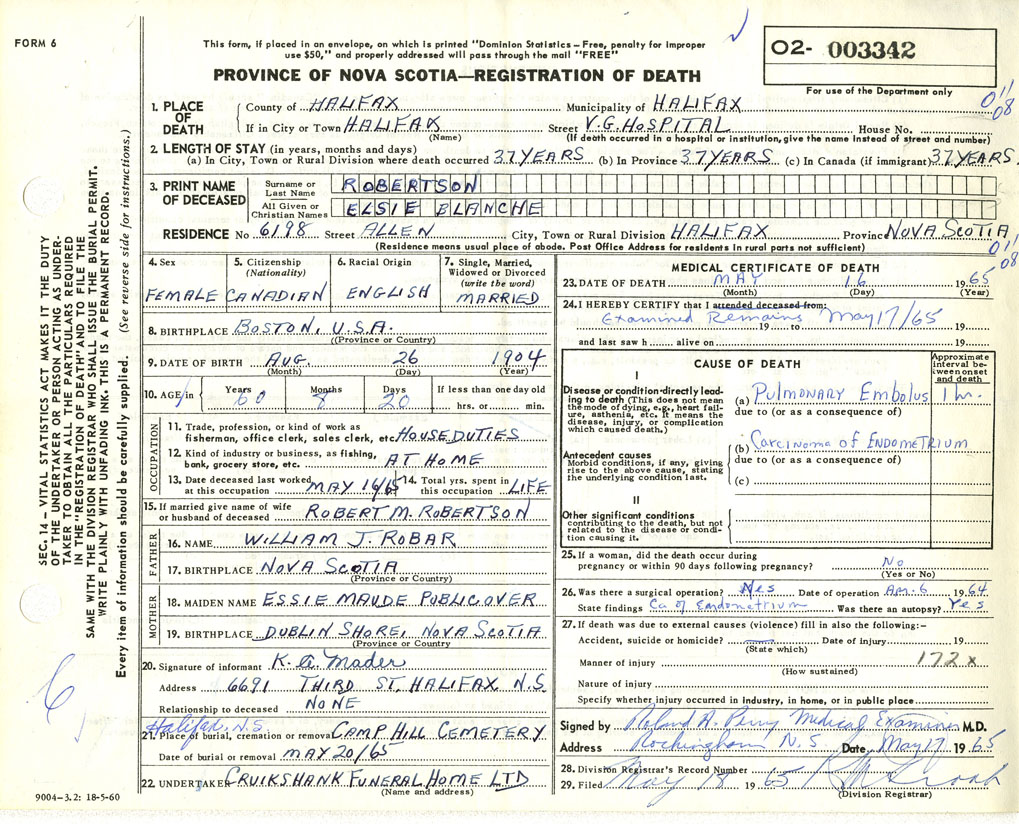 FORM 6
This form, if placed in an envelope, on which is printed "Dominion Statistics – Free, penalty for improper
use $50," and properly addressed will pass through the mail "FREE"
O2- 003342
PROVINCE OF NOVA SCOTIA—REGISTRATION OF DEATH
For use of the Department only
011
08
1. PLACE OF DEATH
County of HALIFAX Municipality of HALIFAX
If in City or Town HALIFAX Street V.G. HOSPITAL House No.
(Name) (If death occurred in a hospital or institution, give the name instead of street and number)
2. LENGTH OF STAY (in years, months and days)
(a) In City, Town or Rural Division where death occurred 37 YEARS (b) In Province 37 YEARS (c) In Canada (if immigrant) 37 YEARS
3. PRINT NAME OF DECEASED
Surname or Last Name ROBERTSON
All Given or Christian Names ELSIE BLANCHE
RESIDENCE No 6198 Street ALLEN City, Town or Rural Division HALIFAX Province NOVA SCOTIA
(Residence means usual place of abode. Post Office Address for residents in rural parts not sufficient)
011
08
4. Sex
FEMALE
5. Citizenship
(Nationality)
CANADIAN
6. Racial Origin
ENGLISH
7. Single, Married,
Widowed or Divorced
(write the word)
MARRIED
8. BIRTHPLACE BOSTON, U.S.A.
(Province or Country)
9. DATE OF BIRTH AUG. 26 1904
(Month) (Day) (Year)
10. AGE in Years Months Days If less than one day old
60 8 20 hrs. or min.
OCCUPATION
11. Trade, profession, or kind of work as
fisherman, office clerk, sales clerk, etc. HOUSE DUTIES
12. Kind of industry or business, as fishing,
bank, grocery store, etc. AT HOME
13. Date deceased last worked
at this occupation MAY 16/65
14. Total yrs. spent in
this occupation LIFE
15. If married give name of wife
or husband of deceased ROBERT M. ROBERTSON
FATHER
16. NAME WILLIAM J. ROBAR
17. BIRTHPLACE NOVA SCOTIA
(Province or Country)
MOTHER
18. MAIDEN NAME ESSIE MAUDE PUBLICOVER
19. BIRTHPLACE DUBLIN SHORE, NOVA SCOTIA
(Province or Country)
20. Signature of informant K. A. Mader
Address 6691 THIRD ST, HALIFAX N.S.
Relationship to deceased NONE
Halifax, N.S.
21. Place of burial, cremation or removal CAMP HILL CEMETERY
Date of burial or removal MAY 20/65
22. UNDERTAKER CRUIKSHANK FUNERAL HOME LTD
(Name and address)
MEDICAL CERTIFICATE OF DEATH
23. DATE OF DEATH MAY 16 1965
(Month) (Day) (Year)
24. I HEREBY CERTIFY that I attended deceased from:
Examined Remains May 17/65
19 to 19
and last saw h alive on 19
CAUSE OF DEATH
Approximate interval between onset and death
I
Disease or condition directly leading to death (This does not mean the mode of dying, e.g., heart failure, asthenia, etc. It means the disease, injury, or complication which caused death.)
(a) Pulmonary Embolus 1 hr.
due to (or as a consequence of)
(b) Carcinoma of Endometrium
due to (or as a consequence of)
Antecedent causes
Morbid conditions, if any, giving rise to the above cause, stating the underlying condition last.
(c)
II
Other significant conditions
contributing to the death, but not related to the disease or condition causing it.
25. If a woman, did the death occur during
pregnancy or within 90 days following pregnancy? No
(Yes or No)
26. Was there a surgical operation? Yes Date of operation Apr. 6 1964
State findings Ca of Endometrium Was there an autopsy? Yes
27. If death was due to external causes (violence) fill in also the following:–
Accident, suicide or homicide? Date of injury 19
(State which)
172x
Manner of injury
(How sustained)
Nature of injury
Specify whether injury occurred in industry, in home, or in public place
Signed by Roland A. Perry Medical Examiner M.D.
Address Rockingham N.S Date May 17 1965
28. Division Registrar's Record Number
29. Filed May 18 1965
(Division Registrar)
SEC. 14 – VITAL STATISTICS ACT MAKES IT THE DUTY
OF THE UNDERTAKER OR PERSON ACTING AS UNDER-
TAKER TO OBTAIN ALL THE PARTICULARS REQUIRED
IN THE "REGISTRATION OF DEATH" AND TO FILE THE
SAME WITH THE DIVISION REGISTRAR WHO SHALL ISSUE THE BURIAL PERMIT.
WRITE PLAINLY WITH UNFADING INK. THIS IS A PERMANENT RECORD.
Every item of information should be carefully supplied. (See reverse side for instructions.)
9004–3.2: 18-5-60